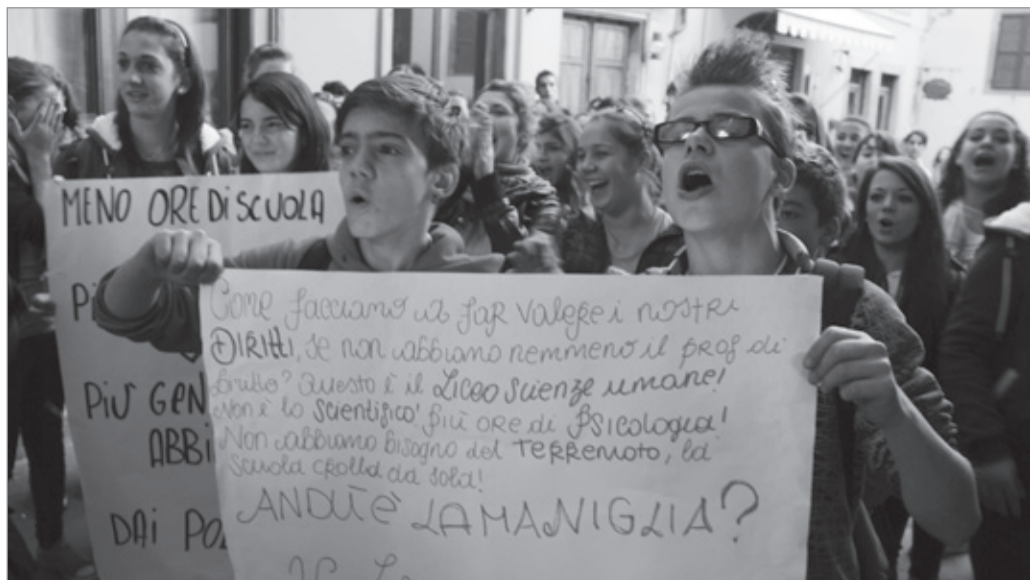 MENO ORE DI SCUOLA
PiÙ GEN
ABBI
DAI PO
Come facciamo a far valere i nostri
DIRITTI, se non abbiamo nemmeno il prof di
diritto? Questo è il Liceo Scienze umane!
Non è lo scientifico! più ore di Psicologia!
Non abbiamo bisogno del TERREMOTO, la
scuola crolla da sola!
ANDU'È LA MANIGLIA?